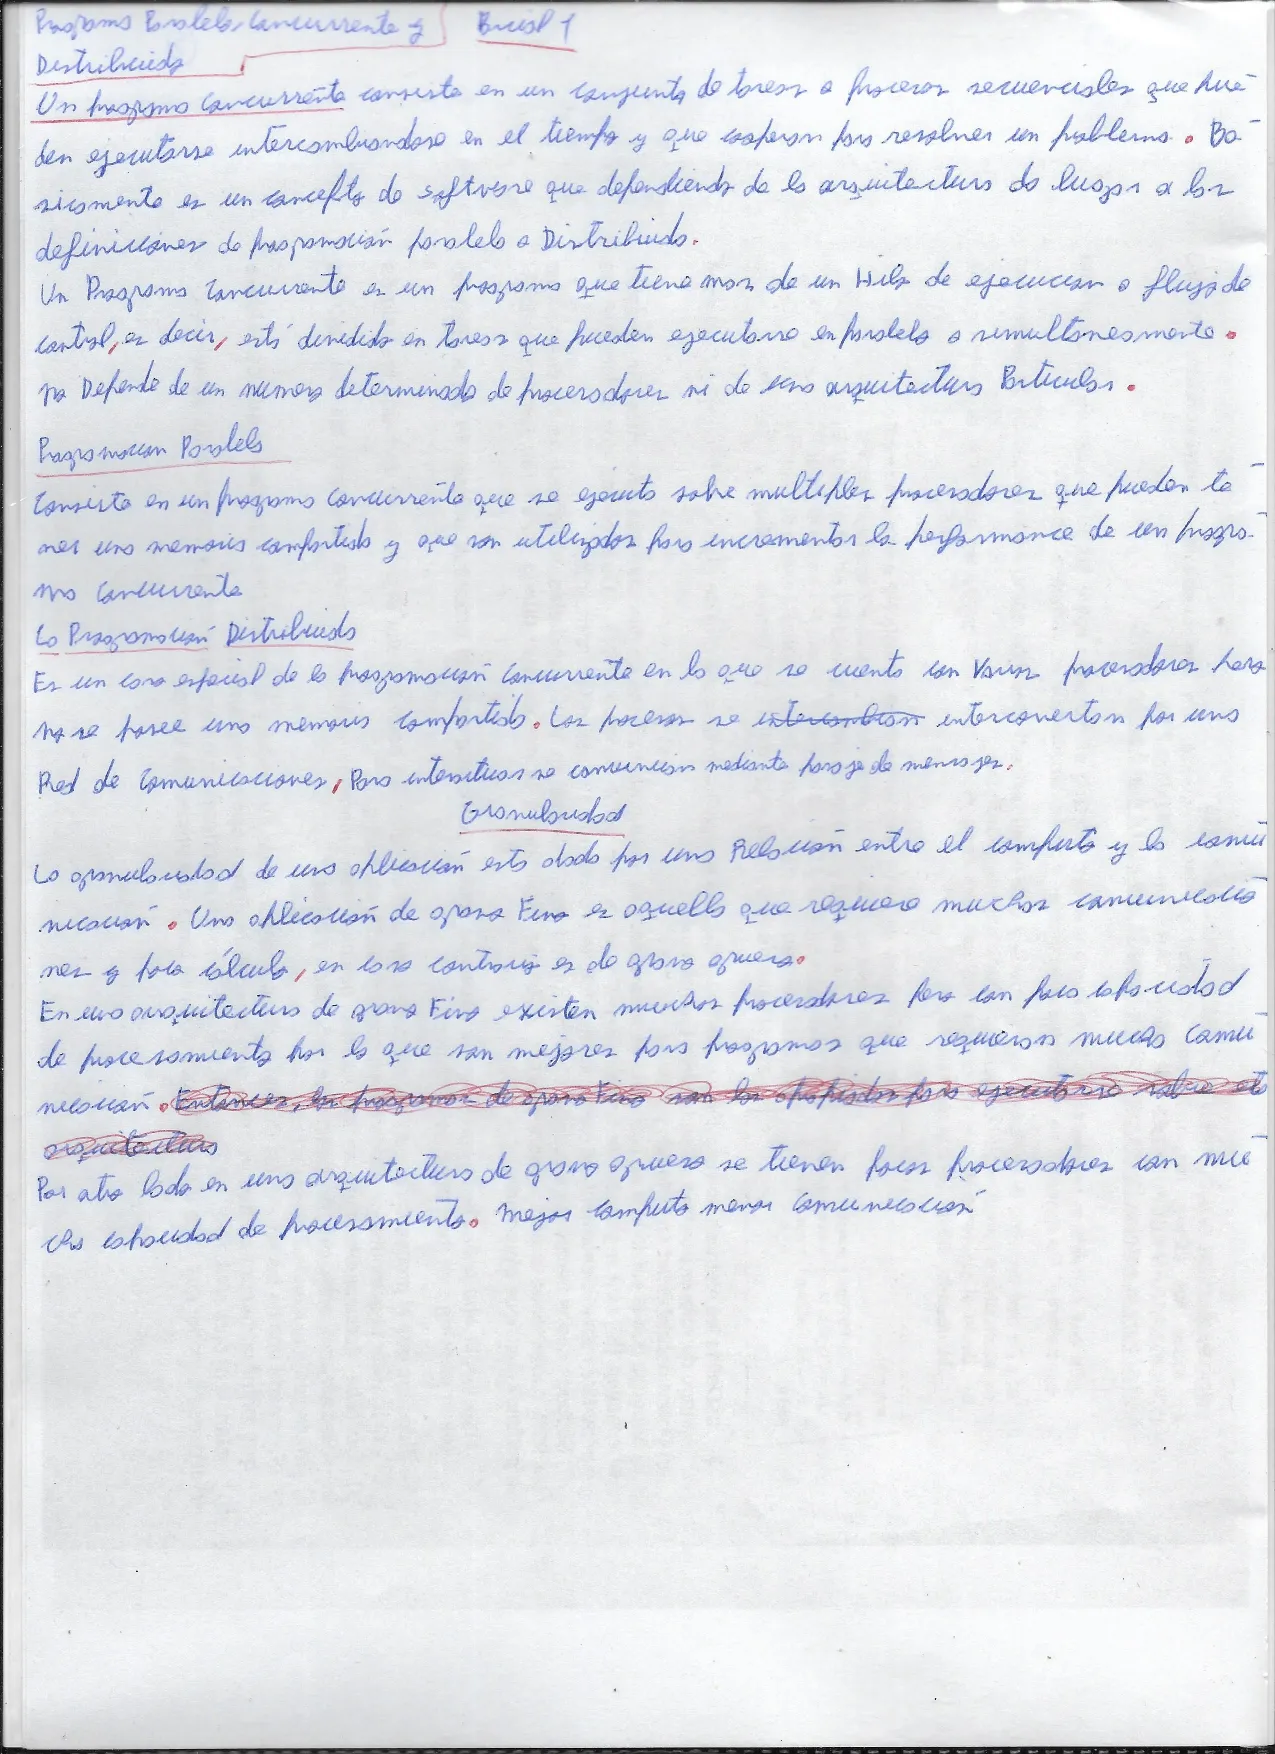 Programa Paralelo, Concurrente y
Distribuido
Un programa Concurrente consiste en un conjunto de tareas o procesos secuenciales que pue-
den ejecutarse intercambiandose en el tiempo y que cooperan para resolver un problema. Ba-
sicamente es un concepto de software que dependiendo de la arquitectura da lugar a las
definiciones de programación paralela o Distribuida.
Un Programa Concurrente es un programa que tiene mas de un Hilo de ejecucion o flujo de
control, es decir, está dividido en tareas que pueden ejecutarse en paralelo o simultaneamente.
no Depende de un numero determinado de procesadores ni de una arquitectura Particular.
Programacion Paralela
Consiste en un programa Concurrente que se ejecuta sobre multiples procesadores que pueden te-
ner una memoria compartida y que son utilizados para incrementar la performance de un progra-
ma Concurrente
La Programación Distribuida
Es un caso especial de la programación Concurrente en la que se cuenta con Varios procesadores pero
no se posee una memoria compartida. Los procesos se intercambian interconectan por una
Red de Comunicaciones, Para interactuar se comunican mediante pasaje de mensajes.
Granularidad
La granularidad de una aplicación esta dada por una Relación entre el computo y la comu-
nicación. Una aplicación de grano Fino es aquella que requiere muchas comunicacio-
nes y poco cálculo, en caso contrario es de grano grueso.
En una arquitectura de grano Fino existen muchos procesadores pero con poca capacidad
de procesamiento por lo que son mejores para programas que requieran mucha Comu-
nicación. Entonces, los programas de grano Fino son los apropiados para ejecutarse sobre esta
arquitectura
Por otro lado en una arquitectura de grano grueso se tienen pocos procesadores con mu-
cha capacidad de procesamiento. Mejor computo menor Comunicación